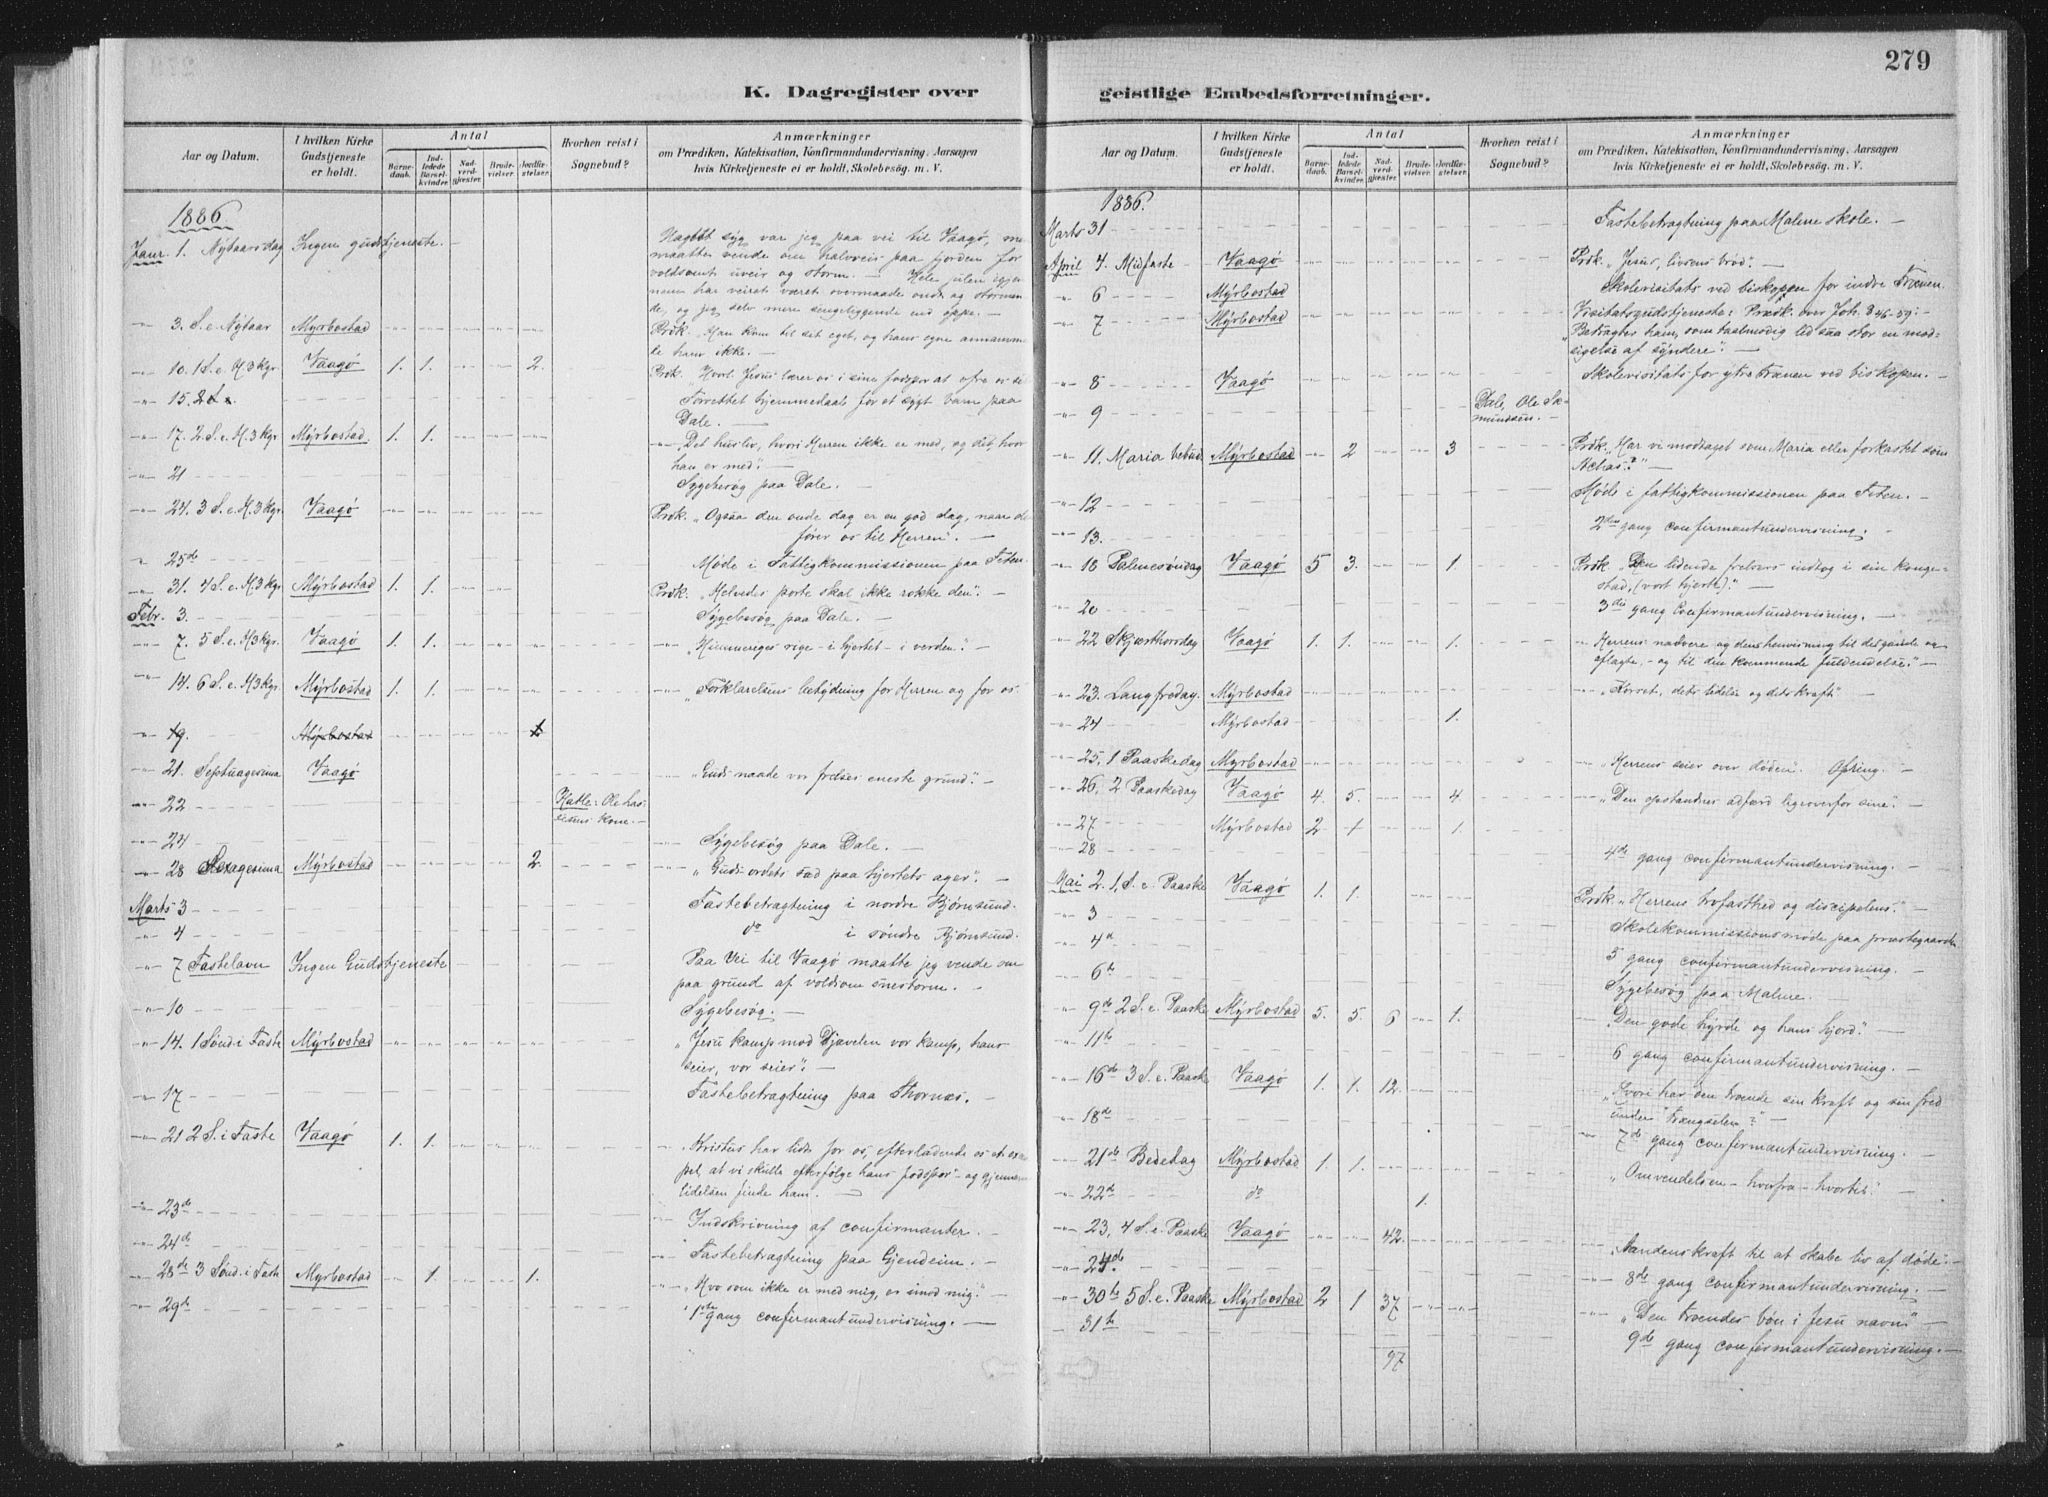 279
K. Dagregister over
geistlige Embedsforretninger.
Aar og Datum.
I hvilken Kirke Gudstjeneste er holdt.
Antal
Barnedaab.
Indledede Barselkvinder.
Nadverdgjæster.
Brudevielser.
Jordfæstelser.
Hvorhen reist i Sognebud?
Anmærkninger
om Prædiken, Katekisation, Konfirmandundervisning, Aarsagen
hvis Kirketjeneste ei er holdt, Skolebesøg. m. V.
1886.
Janr. 1. Nÿtaarsdag Ingen gudstjeneste. — syg var jeg paa vei til Vaagø,
maatte vende om halvveis paa fjorden for
voldsomt uveir og storm. — Hele ulen igjen-
nem har veiret været overmaade ondt og stormen-
de, og jeg selv mere sengeliggende end oppe. —
" 3. S. e. Nÿtaar Myrbostad Prdk. "Han kom til sit eget, og hans egne annamme-
de ham ikke. —
" 10. 1 S. e. H3kgr. Vaagø 1. 1. 2. Prdk. Jesus lærer os i sine fodspor at
" 15. Forrettet hjemmedaab for et sygt barn paa
Dale. —
" 17. 2 S. e. H.3kgr. Mÿrbostad. 1. 1. "Det husliv, hvori Herren ikke er med, og det, hvor
han er med". —
" 21 Sygebesøg paa Dale. —
" 24. 3 S. e. H.3kgr. Vaagø Prdk. "Ogsaa den onde dag er en god dag, naar de
fører os til Herren". —
" 25de Møde i Fattigkommissionen paa Feten.
" 31. 4 S. e. H.3kgr. Mÿrbostad 1. 1. Prdk. "Helvedes porte skal ikke rokke den". —
Febr. 3. Sÿgebesøg paa Dale. —
" 7. 5 S. e. H3kgr. Vaagø 1. 1. "Himmeriges rige – i hjertet – i verden." —
" 14. 6 S. e. H3kgr. Mÿrbostad 1. 1. "Forklarelsens betÿdning for Herren og for os.
" 19. Mÿrbostad 1
" 21. Septuagesima Vaagø "Guds naade vor frelses eneste grund". —
" 22 Hatle: Ole
kone. —
" 24 Sÿgebesøg paa Dale. —
" 28 Sexagesima Mÿrbostad 2. "Guds ordets sæd paa hjertets ager". —
Marts 3 Fastebetragtning i nordre Bjørnsund.
" 4 do i søndre Bjørnsund.
" 7 Fastelavn Ingen Gudstjeneste Paa Vei til Vaagø maatte jeg vende om
paa grund af voldsom snestorm. —
" 10 Sÿgebesøg. —
" 14. 1 Sønd. i Faste Mÿrbostad "Jesu kamp mod Djævelen vor kamp, hans
seier, vor seier". —
" 17 Fastebetragtning paa Thornes. —
" 21 2 S. i Faste Vaagø 1. 1. "Kristus har lidt for os, efterladende os et exem-
pel, at vi skulle efterfølge hans fodspor" – og gjennem
lidelsen finde ham. —
" 23de Indskrivning af confirmanter. —
" 24de Fastebetragtning paa Gjendem. —
" 28de 3 Sønd. i Faste Mÿrbostad 1. 1. "Hvo som ikke er med mig, er imod mig." —
" 29de 1ste gang confirmantundervisning. —
Aar og Datum.
I hvilken Kirke Gudstjeneste er holdt.
Antal
Barnedaab.
Indledede Barselkvinder.
Nadverdgjæster.
Brudevielser.
Jordfæstelser.
Hvorhen reist i Sognebud?
Anmærkninger
om Prædiken, Katekisation, Konfirmandundervisning, Aarsagen
hvis Kirketjeneste ei er holdt, Skolebesøg. m. V.
1886.
Marts 31 Fastebetragtning paa Malme skole. —
April 4. Midfaste Vaagø Prdk. "Jesus, livsens brød". —
" 6 Mÿrbostad Skolevisitats ved biskopen for indre Frænen.
" 7 Mÿrbostad Visitatsgudstjeneste: Prædk. over Joh. 8 46-59: —
"Betragter ham, som taalmodig led saa stor en mod-
sigelse af syndere". —
" 8 Vaagø Skolevisitats for ytre Frænen ved biskopen. —
" 9 Dale, Ole
—
" 11. Maria bebud. Mÿrbostad 2 3 Prdk. "Har vi modtaget som Maria eller forkastet som
Achas?" —
" 12 Møde i fattigkommissionen paa Feten. —
" 13. 2den gang confirmantundervisning. —
" 18 Palmesøndag Vaagø 5 3. 1. Prdk. "Den lidende frelsers indtog i sin konge-
stad, (vort hjerte)." —
" 20 3die gang Confirmantundervisning. —
" 22 Skjærthorsdag Vaagø 1. 1. 1. "Herrens nadvere og dens henvisning til det gamle og
aflagte, – og til den kommende fuldendelse." —
" 23. Langfredag. Mÿrbostad "Korset, dets lidelse og dets kraft" —
" 24 Mÿrbostad 1.
" 25. 1 Paaskedag Mÿrbostad "Herrens seier over døden". Ofring. —
" 26. 2 Paaskedag Vaagø 4. 5. 4 "Den opstandnes adfærd ligeoverfor sine". —
" 27 Mÿrbostad 2 1 1.
" 28 4de gang confirmantundervisning. —
Mai 2. 1. S. e. Paaske Vaagø 1. 1. Prdk. "Herrens trofasthed og disciplens". —
" 3 Skolekommissionsmøde paa præstegaarden
" 4de 5 gang confirmantundervisning. —
" 6te Sÿgebesøg paa Malme. —
" 9de 2 S. e. Paaske Mÿrbostad 5. 5. 6 1. "Den gode hÿrde og hans hjord". —
" 11te 6 gang confirmantundervisning. —
" 16de 3 S. e. Paaske Vaagø 1. 1. 12. "Hvori har den troende sin kraft og sin fred
under Trængselen?" —
" 18de 7de gang confirmantundervisning. —
" 21de Bededag Mÿrbostad 1. 1. "Omvendelsen – hvorfra – hvortil" —
" 22de do 1.
" 23, 4 S. e. Paaske Vaagø 42. "Aandens kraft til at skabe liv af døde". —
" 24de. 8de gang confirmantundervisning. —
" 30te 5 S. e. Paaske Mÿrbostad 2 1 37 "Den troendes bøn i Jesu navn" —
" 31te 9de gang confirmantundervisning. —
97